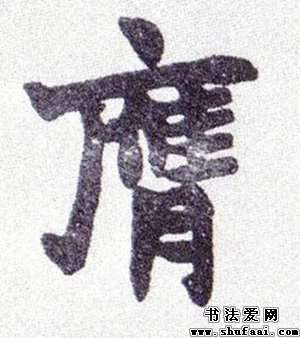 膺
书法爱网
www.shufaai.com